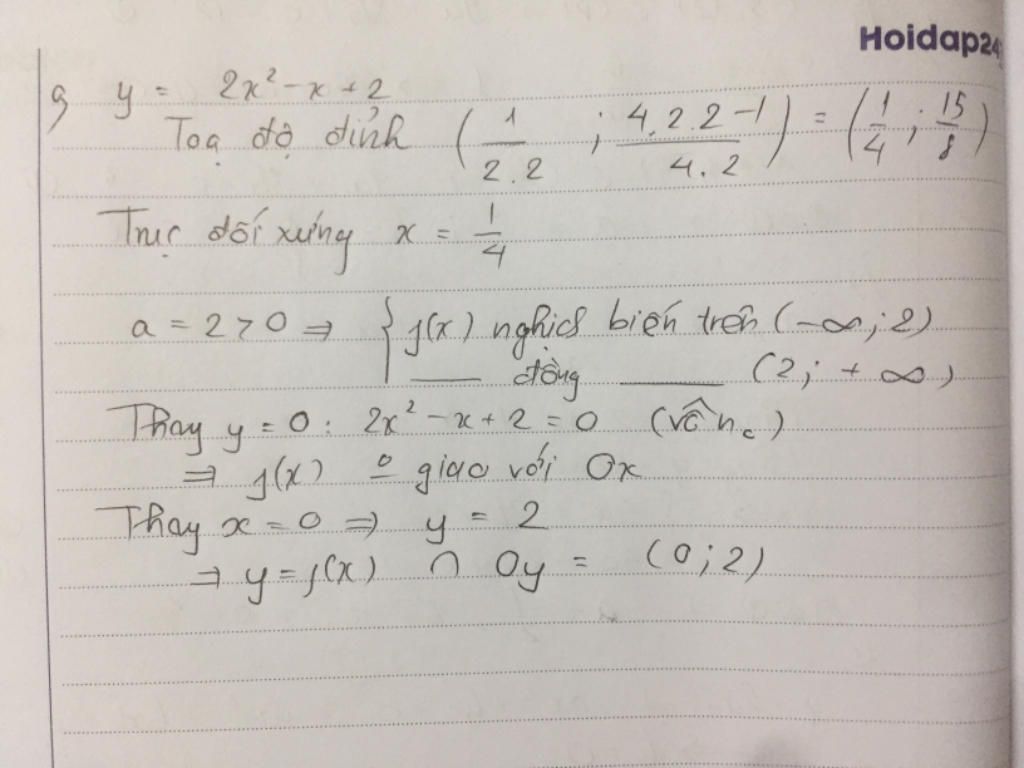 Hoidap24
g y = 2x² - x + 2
Toạ độ đỉnh (1/2.2 ; 4.2.2-1/4.2) = (1/4 ; 15/8)
Trục đối xứng x = 1/4
a = 2 > 0 ⇒ { f(x) nghịch biến trên (-∞; 2)
—— đồng —— (2; +∞)
Thay y = 0 : 2x² - x + 2 = 0 (vô n₀)
⇒ f(x) o giao với Ox
Thay x = 0 ⇒ y = 2
⇒ y = f(x) ∩ Oy = (0; 2)